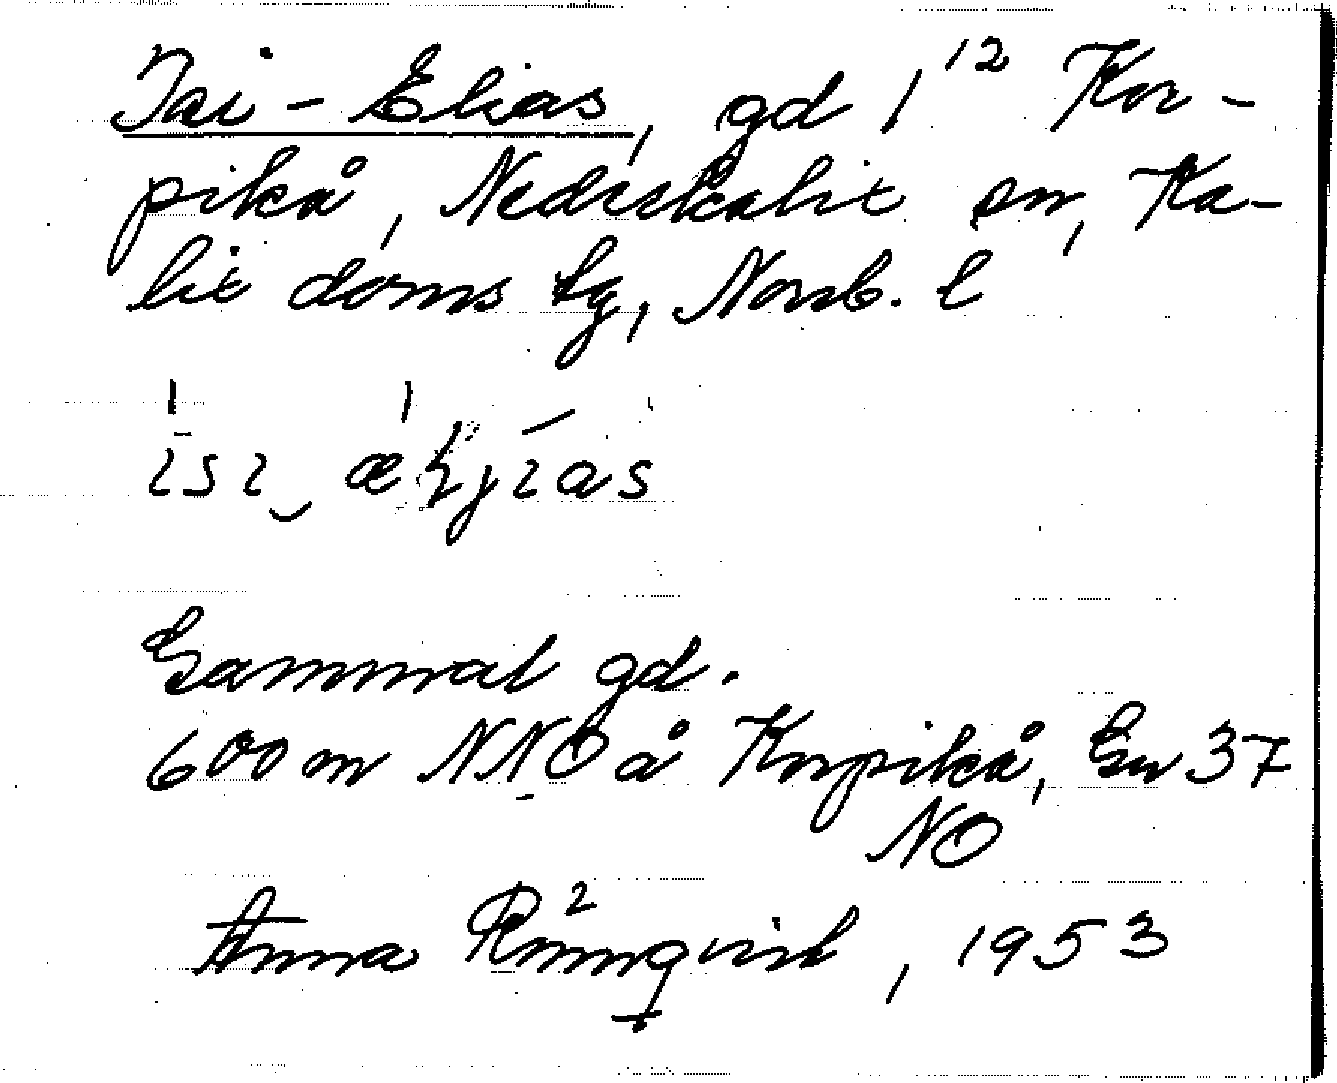 Isi-Elias, gd 1¹² Kor-
pikå, Nederkalix sn, Ka-
lix doms tg, Norrb. l
Gammal gd.
600 m NNO å Korpikå, Gw 37
NO
Anna Rönnqvist², 1953